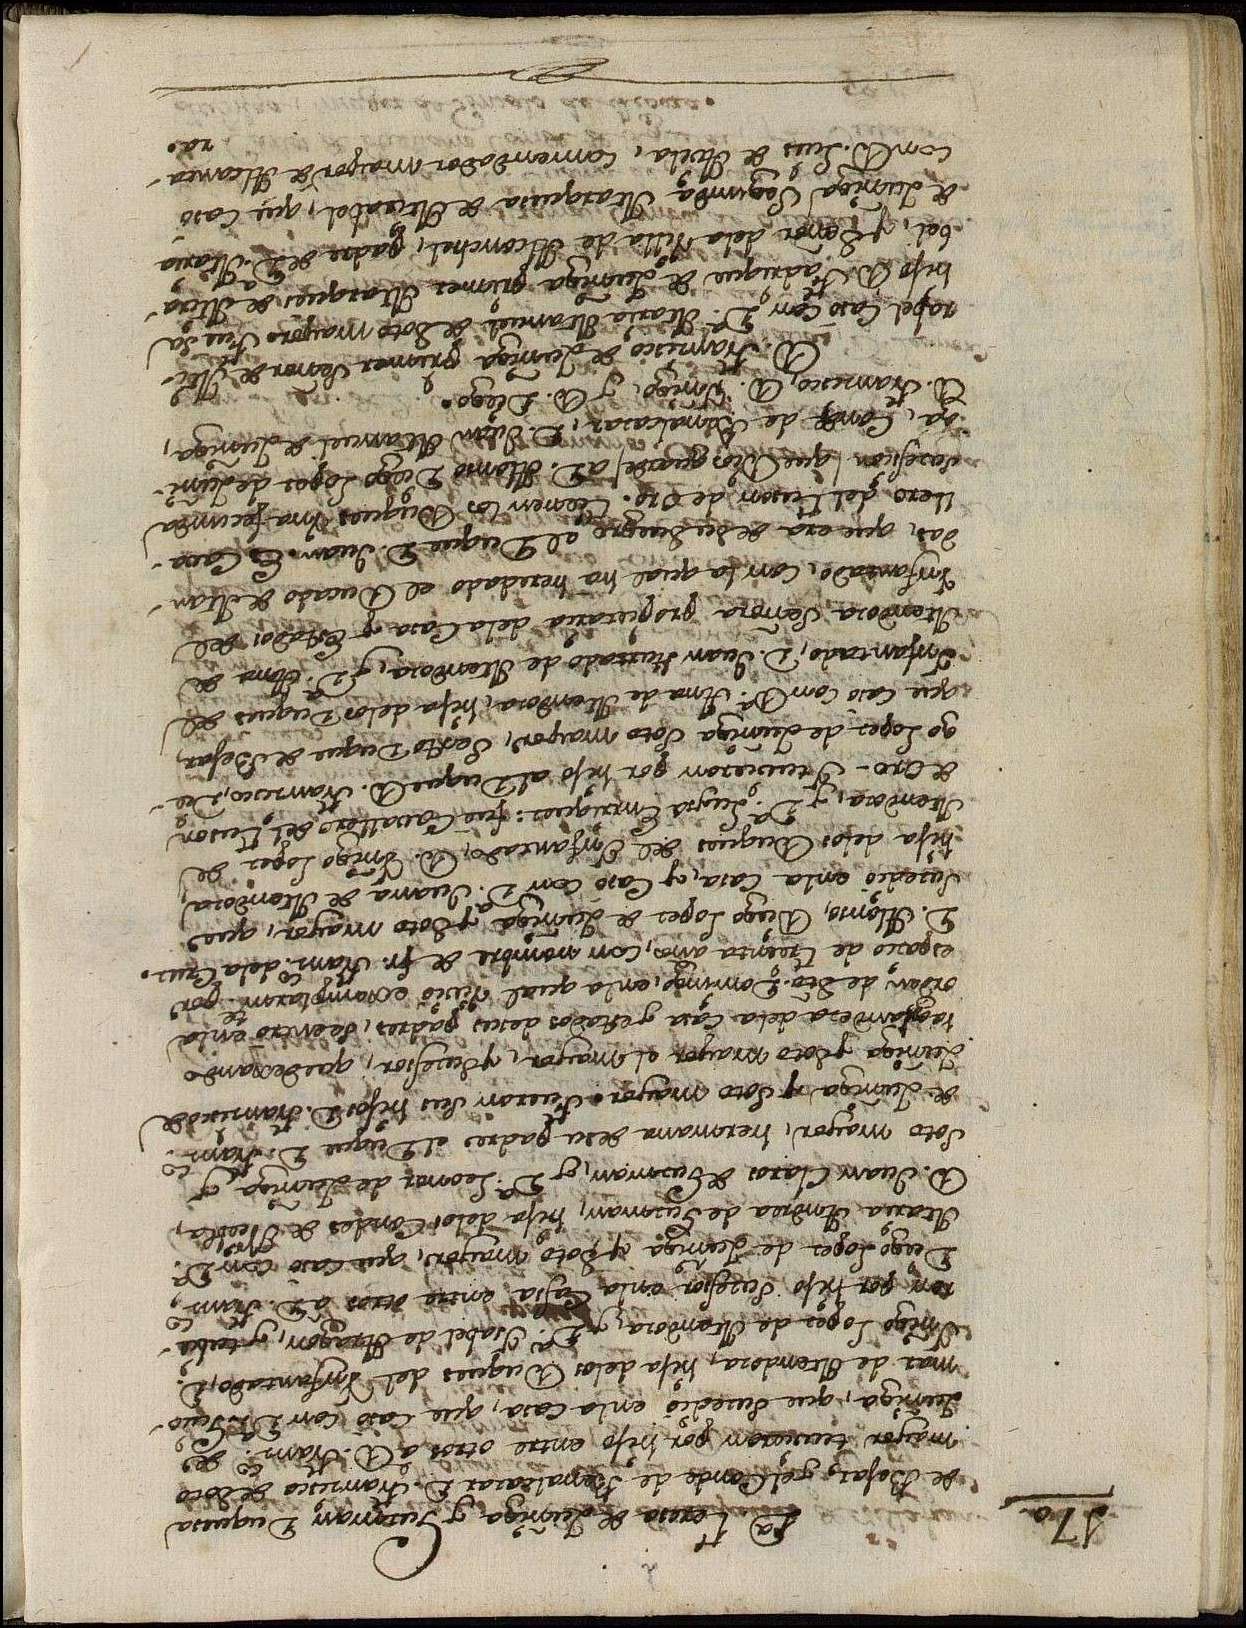 170
Dª Teresa de Zuñiga y Guzman Duquesa
de Bejar, y el Conde de Benalcazar D. Francisco de Soto
mayor tuuieron por hijo entre otros a D. Franco. de
Zuñiga, que suzedio en la casa, que caso con Dª Guio-
mar de Mendoza, hija de los Duques del Infantado, D.
Yñigo Lopez de Mendoza, y Dª Ysabel de Aragon, y tubie-
ron por hijo suzessor en la Casa entre otros a D. Franco.
Diego Lopez de Zuñiga y Soto mayor, que caso con Dª
Maria Andrea de Guzman, hija de los Condes de Niebla,
D. Juan Claros de Guzman, y Dª Leonor de Zuñiga y
Soto mayor, hermana de su padre el Duque D. Franco.
de Zuñiga y Soto mayor. Fueron sus hijos D. Franisco de
Zuñiga y Soto mayor el mayor, y suzessor, que dexando
la grandeza de la Casa y estados de sus padres, se entro en la
orden de Sto. Domingo, en la qual viuio exemplarmte. por
espacio de treynta años, con nombre de fr. Franco. de la Cruz.
D. Alonso, Diego Lopez de Zuñiga y Soto mayor, que
suzedio en la Casa, y caso con Dª Juana de Mendoza,
hija de los Duques del Ynfantado, D. Yñigo Lopez de
Mendoza, y Dª Luysa Enriquez: fue Cauallero del Tuson
de Oro - Y tuuieron por hijo al Duque D. Francisco, Die-
go Lopez de Zuñiga Soto mayor, Sexto Duque de Bejar,
que caso con Dª Ana de Mendoza, hija de los Duques del
Infantado, D. Juan Hurtado de Mendoza, y Dª Anna de
Mendoza Señora propietaria de la Casa y Estados del
Infantado, con la qual ha heredado el Ducado de Man-
das, que era de su suegro al Duque D. Juan. Es Caua-
llero del Tuson de Oro. Tienen los Duques vna fecunda
sucession (que Dios guarde) a D. Alonso Diego Lopez de Zuñi-
ga, Conde de Benalcazar, D. Juan Manuel de Zuñiga,
D. Francisco, D. Yñigo, y D. Diego.
D. Francisco de Zuñiga primer Señor de Mi-
rabel caso con Dª Maria Manuel de Soto mayor. Fue su
hijo D. Fadrique de Zuñiga primer Marques de Mira-
bel, y Señor de la Villa de Alconchel, padre de Dª Maria
de Zuñiga Segunda Marquesa de Mirabel, que caso
con D. Luis de Avila, Comendador mayor de Alcanta-
ra.